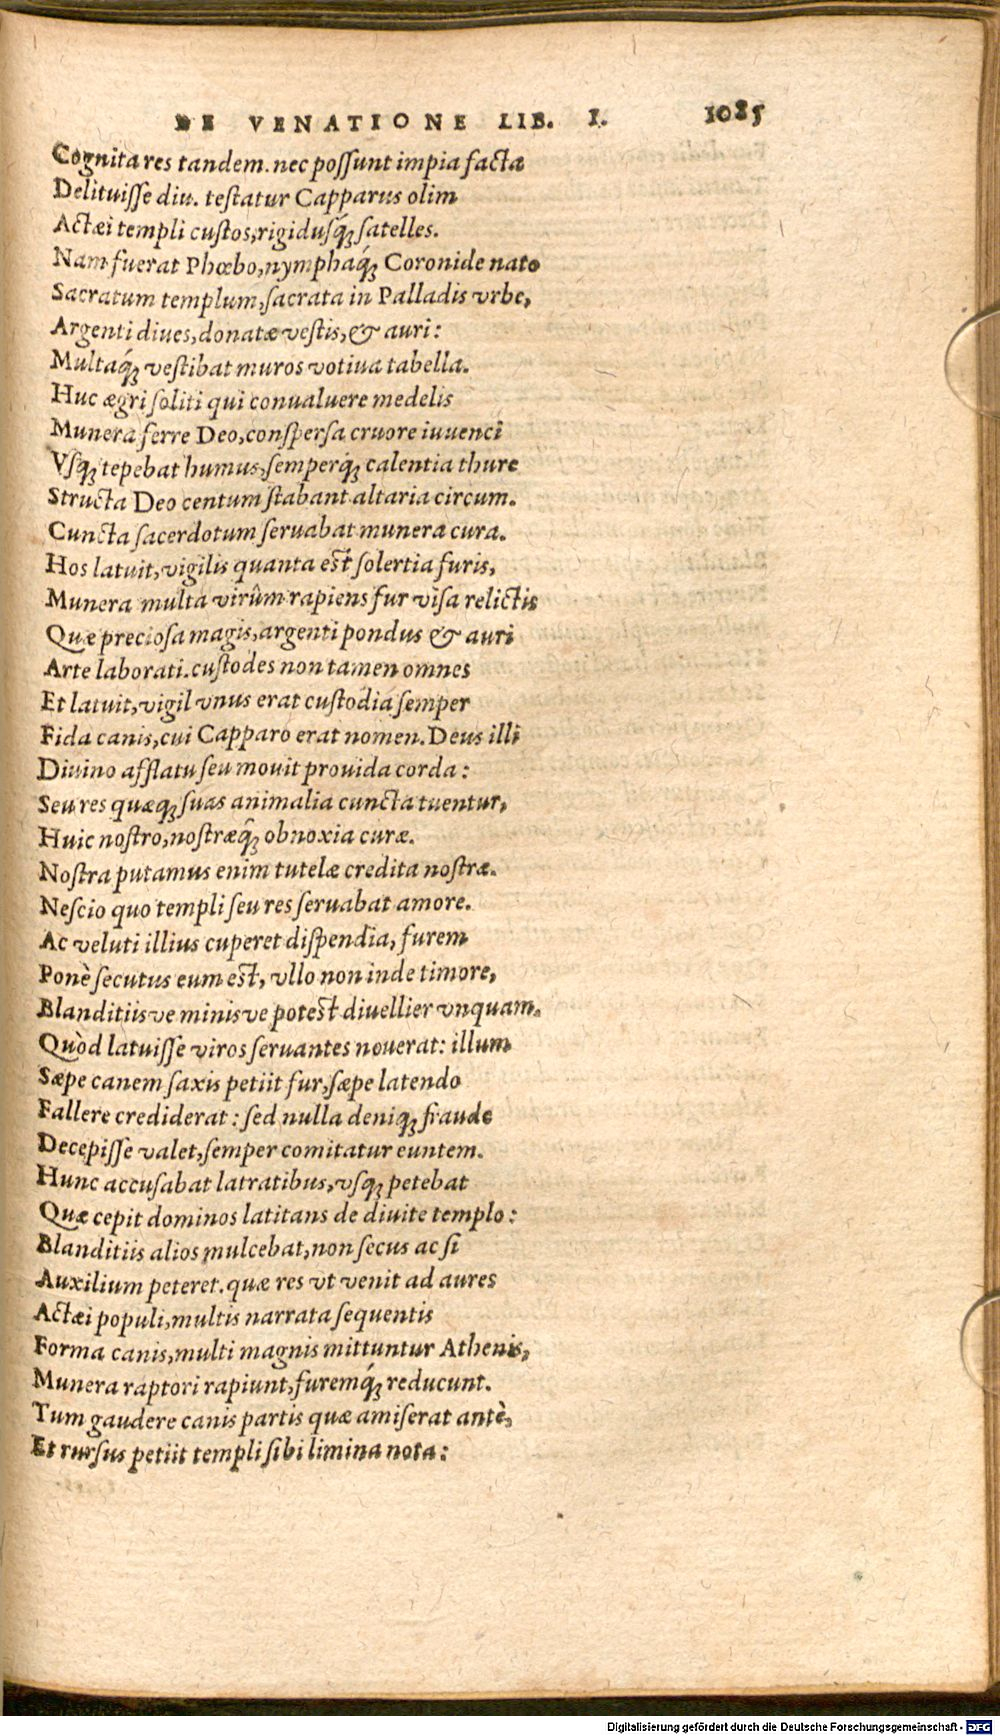 DE VENATIONE LIB. I. 1085
Cognita res tandem. nec poſſunt impia facta
Delituiſſe diu. teſtatur Capparus olim
Actæi templi cuſtos, rigidusq́; ſatelles.
Nam fuerat Phœbo, nymphaq́; Coronide nato
Sacratum templum, ſacrata in Palladis vrbe,
Argenti diues, donatæ veſtis, & auri:
Multaq́; veſtibat muros votiua tabella.
Huc ægri ſoliti qui conualuere medelis
Munera ferre Deo, conſperſa cruore iuuenci
Vſq; tepebat humus, ſemperq́; calentia thure
Structa Deo centum ſtabant altaria circum.
Cuncta ſacerdotum ſeruabat munera cura.
Hos latuit, vigilis quanta eſt ſolertia furis,
Munera multa virûm rapiens fur viſa relictis
Quæ precioſa magis, argenti pondus & auri
Arte laborati. cuſtodes non tamen omnes
Et latuit, vigil vnus erat cuſtodia ſemper
Fida canis, cui Capparo erat nomen. Deus illi
Diuino afflatu ſeu mouit prouida corda:
Seu res quæq; ſuas animalia cuncta tuentur,
Huic noſtro, noſtræq́; obnoxia curæ.
Noſtra putamus enim tutelæ credita noſtræ.
Neſcio quo templi ſeu res ſeruabat amore.
Ac veluti illius cuperet diſpendia, furem
Ponè ſecutus eum eſt, vllo non inde timore,
Blanditiisve minisve poteſt diuellier vnquam.
Quòd latuiſſe viros ſeruantes nouerat: illum
Sæpe canem ſaxis petiit fur, ſæpe latendo
Fallere crediderat: ſed nulla deniq; fraude
Decepiſſe valet, ſemper comitatur euntem.
Hunc accuſabat latratibus, vſq; petebat
Quæ cepit dominos latitans de diuite templo:
Blanditiis alios mulcebat, non ſecus ac ſi
Auxilium peteret. quæ res vt venit ad aures
Actæi populi, multis narrata ſequentis
Forma canis, multi magnis mittuntur Athenis,
Munera raptori rapiunt, furemq́; reducunt.
Tum gaudere canis partis quæ amiſerat antè,
Et rurſus petiit templi ſibi limina nota:
Digitalisierung gefördert durch die Deutsche Forschungsgemeinschaft - DFG